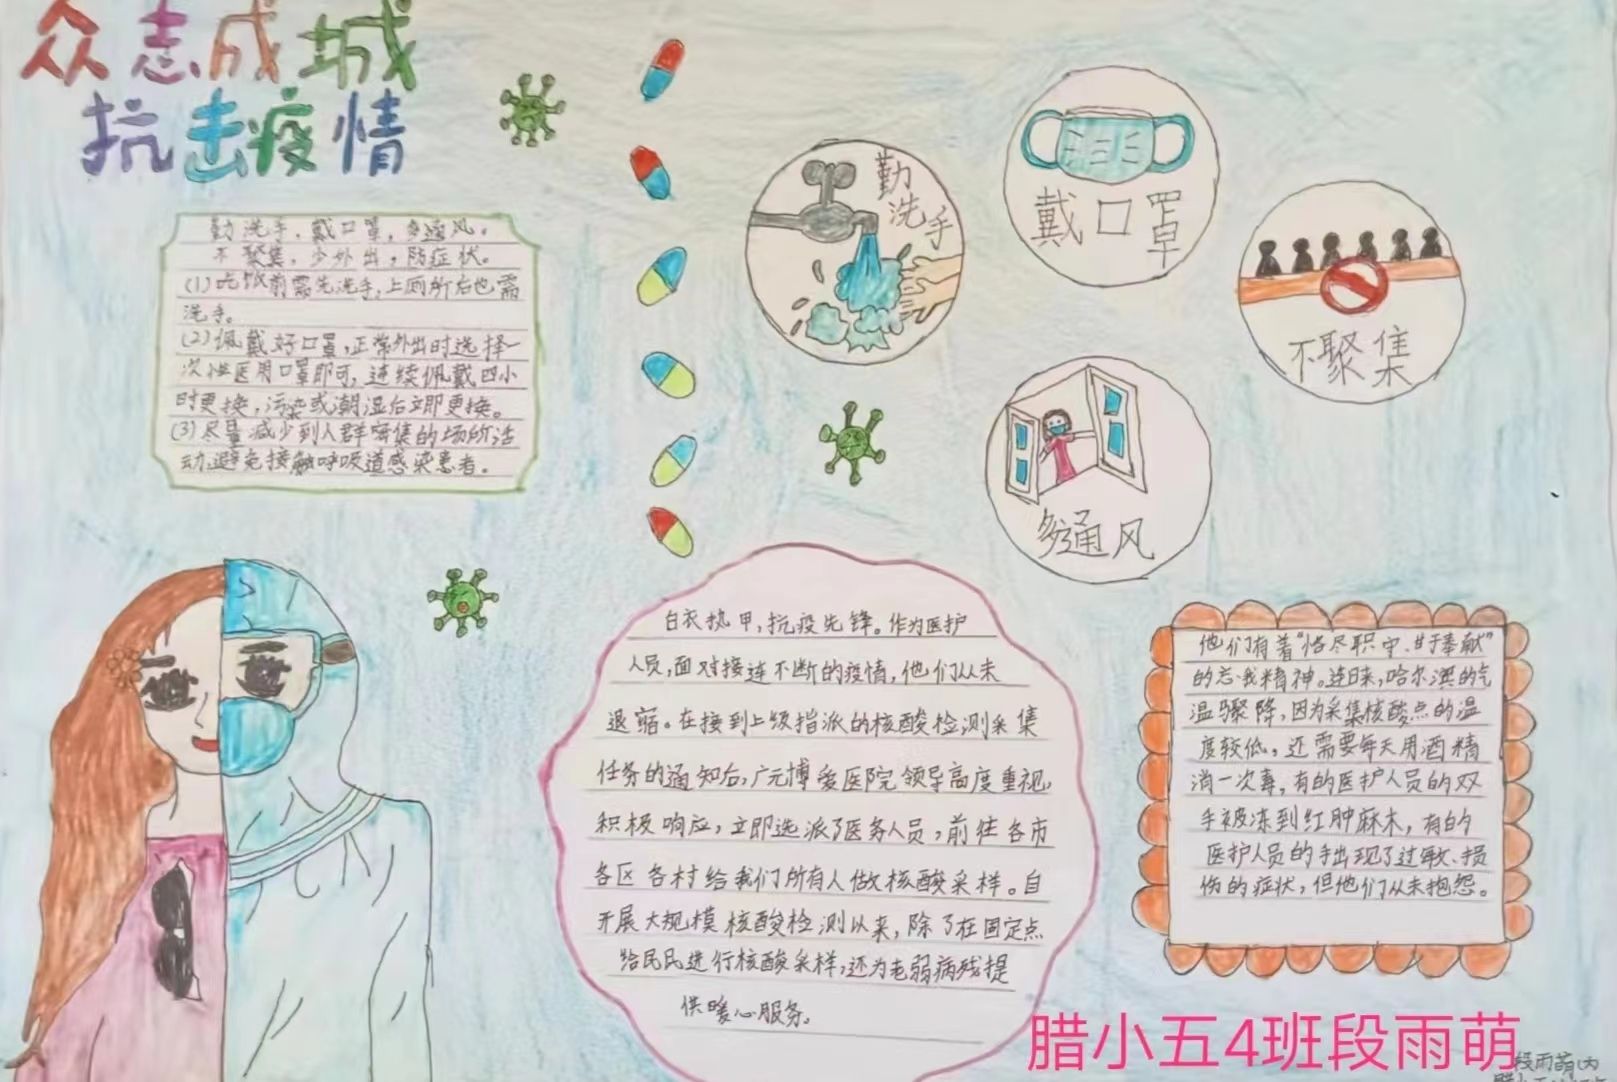 众志成城
抗击疫情
勤洗手,戴口罩,多通风。
不聚集,少外出,防症状。
(1)吃饭前需先洗手,上厕所后也需
洗手。
(2)佩戴好口罩,正常外出时选择一
次性医用口罩即可,连续佩戴四小
时更换,污染或潮湿后立即更换。
(3)尽量减少到人群密集的场所活
动,避免接触呼吸道感染患者。
勤
洗
手
戴口罩
不聚集
多通风
白衣执甲,抗疫先锋。作为医护
人员,面对接连不断的疫情,他们从未
退缩。在接到上级指派的核酸检测采集
任务的通知后,广元博爱医院领导高度重视,
积极响应,立即选派了医务人员,前往各市
各区各村给我们所有人做核酸采样。自
开展大规模核酸检测以来,除了在固定点
给民民进行核酸采样,还为老弱病残提
供暖心服务。
他们有着“恪尽职守、甘于奉献”
的忘我精神。连日来,哈尔滨的气
温骤降,因为采集核酸点的温
度较低,还需要每天用酒精
消一次毒,有的医护人员的双
手被冻到红肿麻木,有的
医护人员的手出现了过敏、损
伤的症状,但他们从未抱怨。
腊小五4班段雨萌
段雨萌